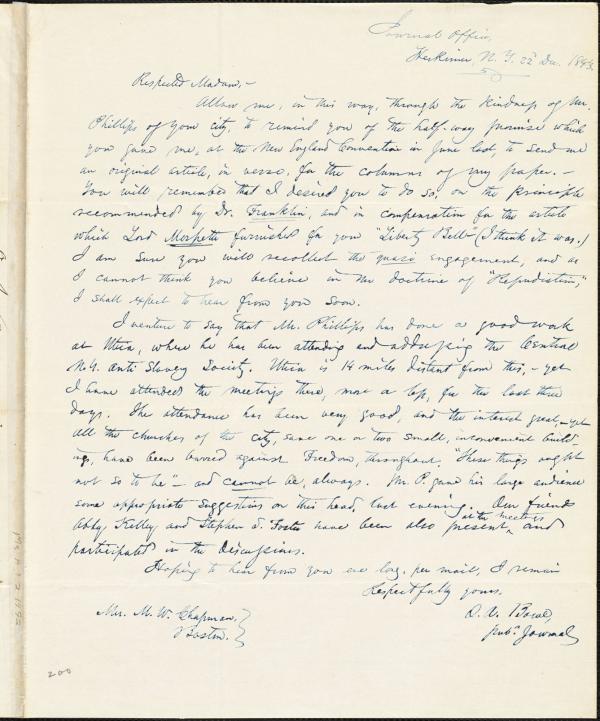 Journal Office,
Herkimer, N. Y. 22d Dec. 1843.
Respected Madam,—
Allow me, in this way, through the kindness of Mr.
Phillips of your city, to remind you of the half-way promise which
you gave me, at the New England Convention in June last, to send me
an original article, in verse, for the columns of my paper. —
You will remember that I desired you to do so, on the principle
recommended by Dr. Franklin, and in compensation for the article
which Lord Morpeth furnished for your "Liberty Bell" (I think it was.)
I am sure you will recollect the quasi engagement, and as
I cannot think you believe in the doctrine of "Repudiation,"
I shall expect to hear from you soon.
I venture to say that Mr. Phillips has done a good work
at Utica, where he has been attending and addressing the Central
N.Y. Anti Slavery Society. Utica is 14 miles distant from this, — yet
I have attended the meetings there, more or less, for the last three
days. The attendance has been very good, and the interest great, — yet
all the churches of the city, save one or two small, inconvenient build-
ings, have been barred against Freedom, throughout. "These things ought
not so to be" — and cannot be, always. Mr. P. gave his large audience
some appropriate suggestions on this head, last evening. Our friends
Abby Kelley and Stephen S. Foster have been also present at the meetings, and
participated in the discussions.
Hoping to hear from you ere long, per mail, I remain
Respectfully yours,
Mrs. M. W. Chapman,
Boston.
pubr. Journal
200